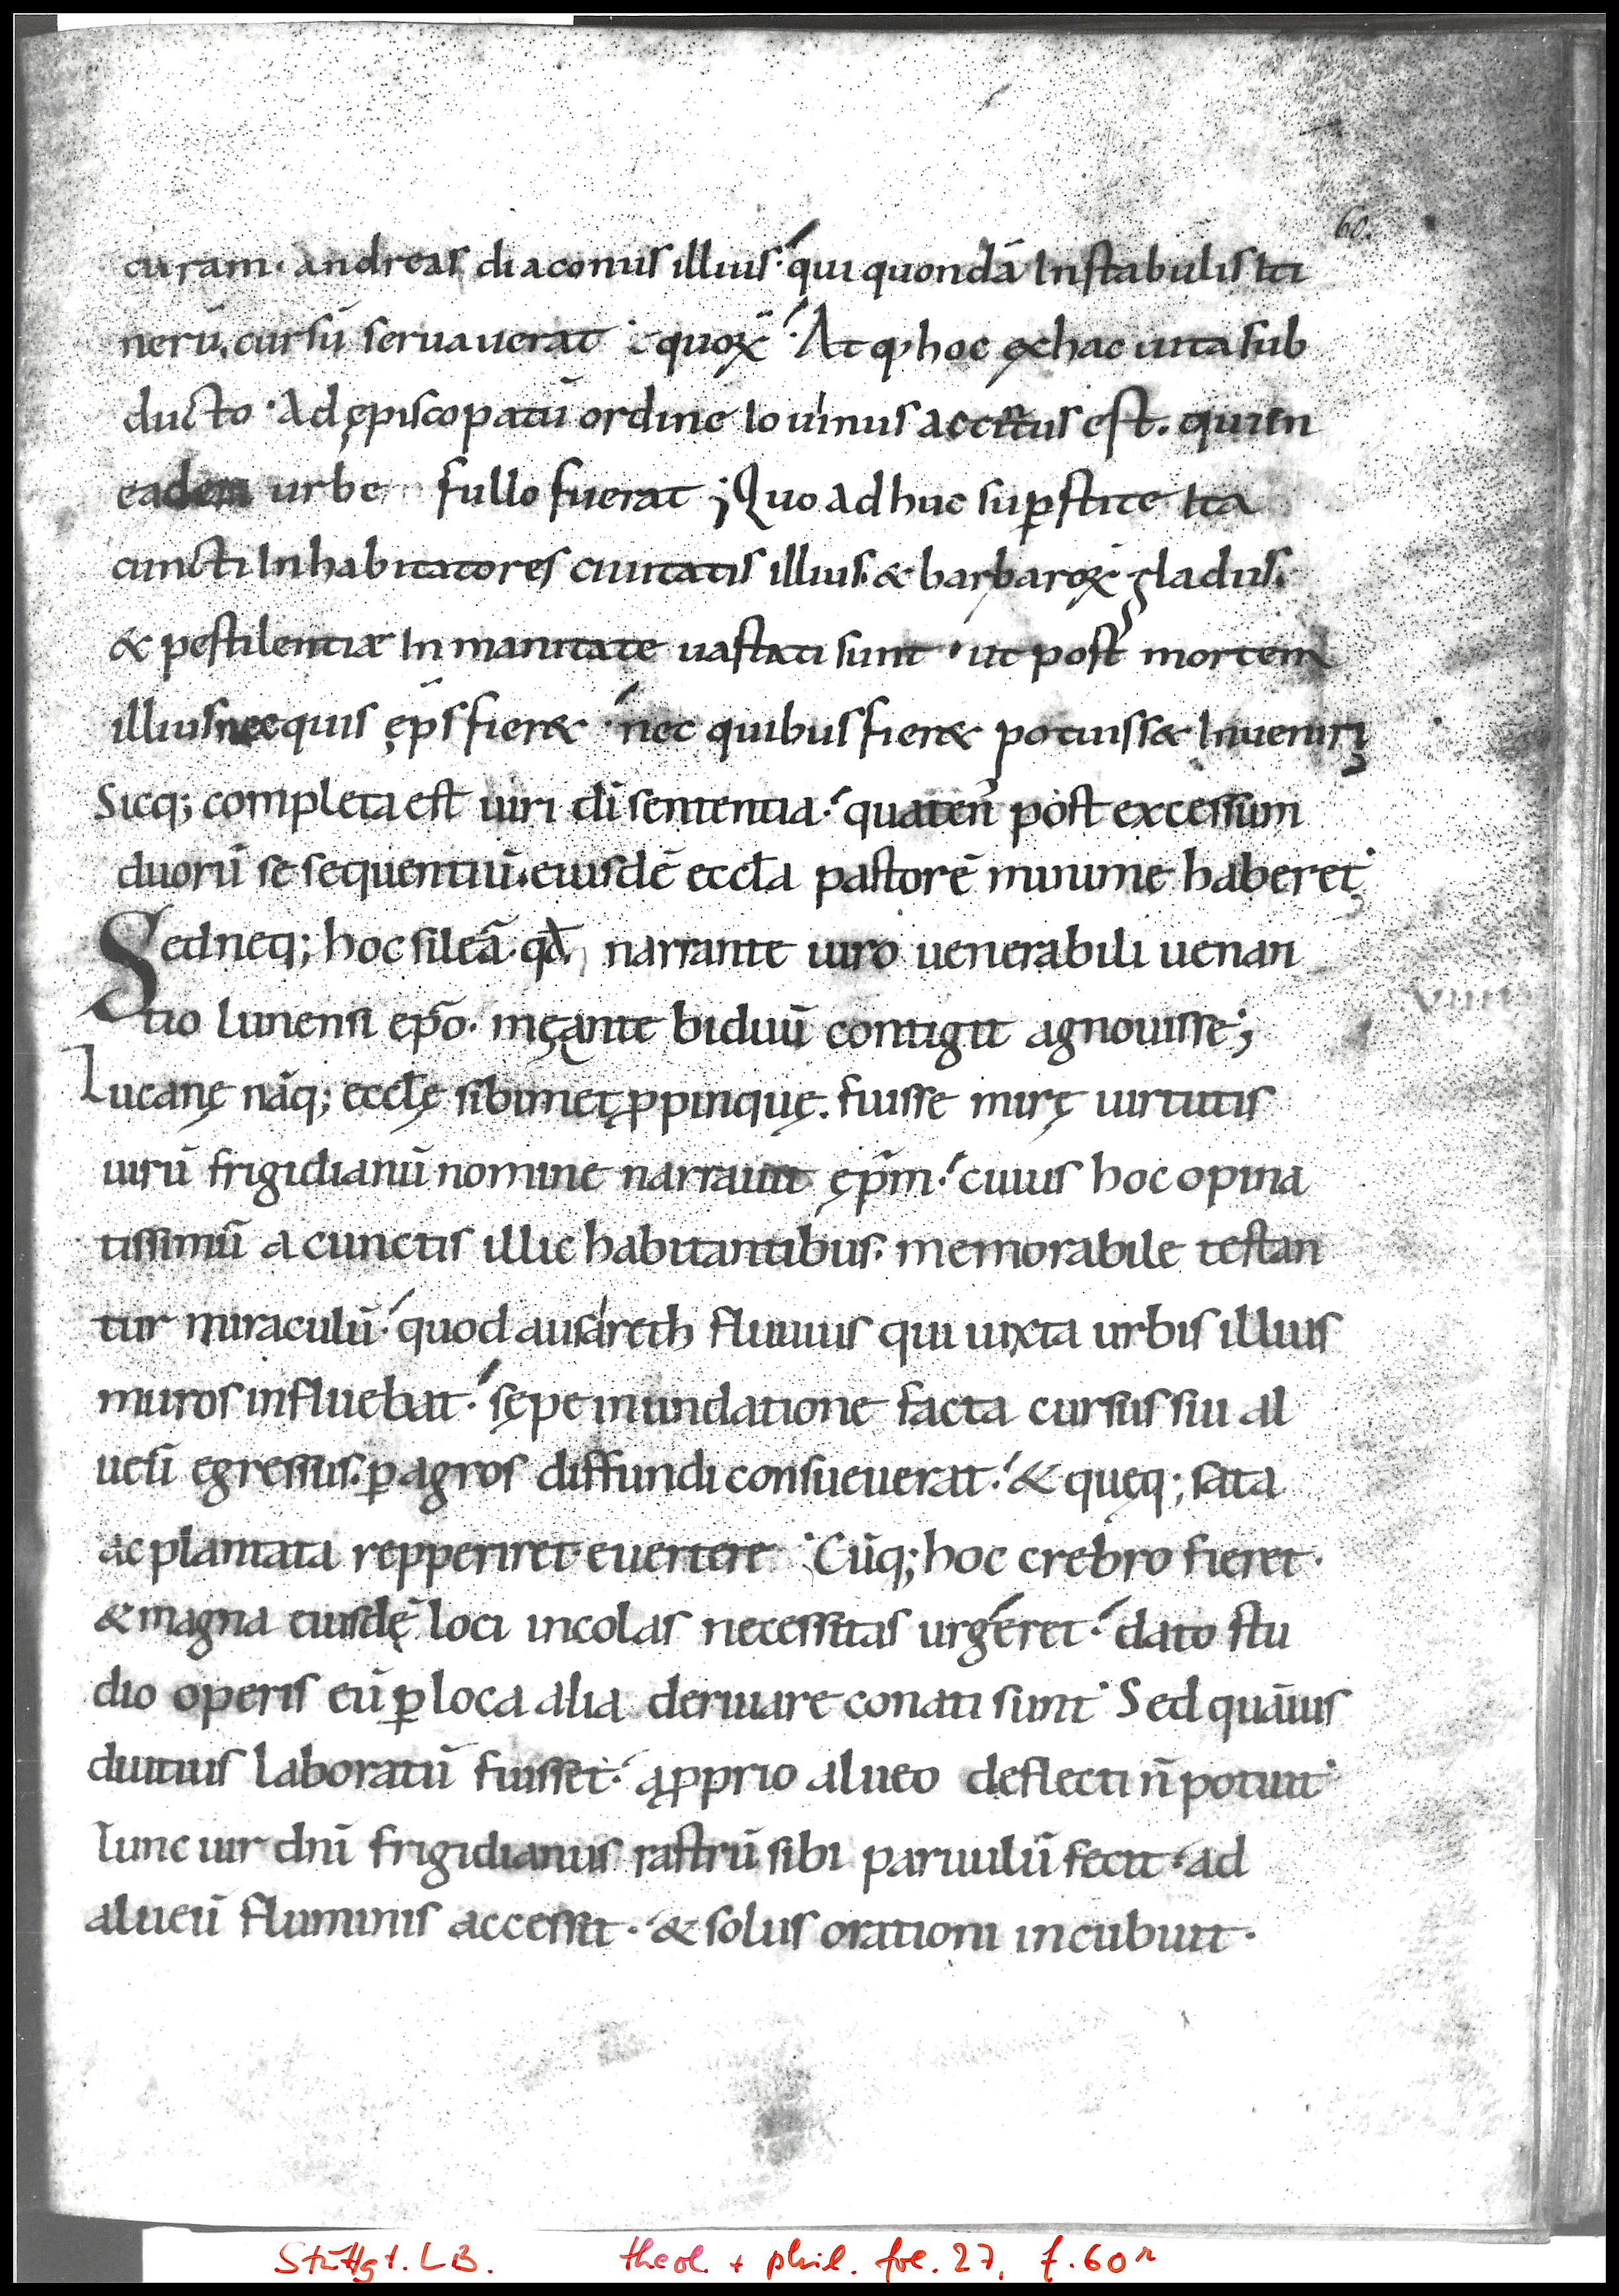 60.
curam. andreas diaconus illius. qui quondā Instabulis Iti
nerū. cursū seruauerat ; equoꝝ. Atq; hoc exhac uita sub
ducto. Ad episcopatū ordine Iouinus accitus est. qui In
eadem urbe fullo fuerat ; Quo ad huc suꝑstite Ita
cuncti Inhabitatores ciuitatis illius. & barbaroꝝ gladiis.
& pestilentiæ Inmanitate uastati sunt. ut post mortem
illius nec quis ęp̄s fier&. nec quibus fier& potuiss& Inueniri;
Sicq; completa est uiri dī sententia. quaten̄ post excessum
duorū se sequentiū. eiusdē eccl̄a pastorē minime haberet;
Sed neq; hoc sileā. qđ narrante uiro uenerabili uenan
tio lunensi ep̄o. mę ante biduū contigit agnouisse;
Lucanę nāq; eccl̄ę sibimet ꝓpinquę. fuisse mirę uirtutis
uirū frigidianū nomine narrauit ęp̄m. cuius hoc opina
tissimū a cunctis illic habitantibus. memorabile testan
tur miraculū. quod ausareth fluuius qui iuxta urbis illius
muros influebat. sępe inundatione facta cursus sui al
ueū egressus. ꝑ agros diffundi consueuerat. & quęq; sata
ac plantata repperiret euertere. Cūq; hoc crebro fieret.
& magna eiusdē loci incolas necessitas urgeret. dato stu
dio operis eū ꝑ loca alia deriuare conati sunt. Sed quāuis
diutius laboratū fuisset. a ꝓprio alueo deflecti n̄ potuit.
Tunc uir dn̄i frigidianus rastrū sibi paruulū fecit. ad
alueū fluminis accessit. & solus orationi incubuit.
VIIII
Stuttgt. LB. theol. + phil. fol. 27, f. 60r